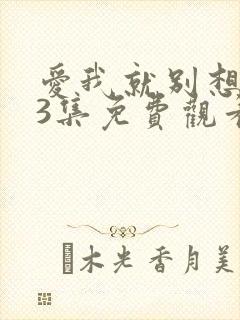 愛我就別想
3集免費觀看
木光香月美